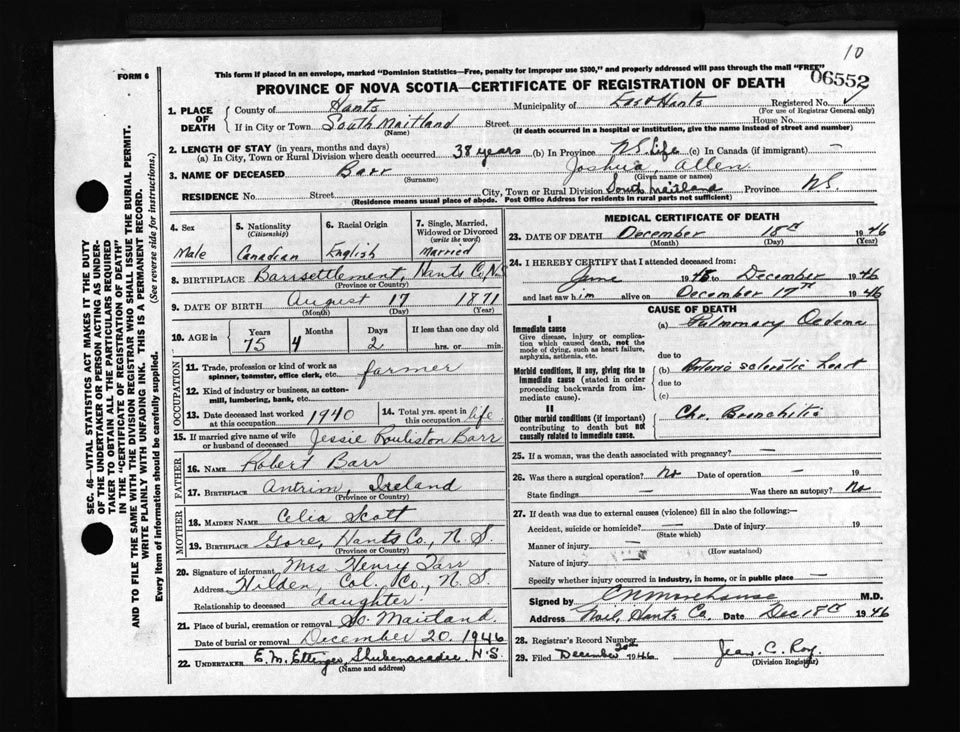 10
FORM 6
This form if placed in an envelope, marked "Dominion Statistics—Free, penalty for improper use $300," and properly addressed will pass through the mail "FREE"
06552
PROVINCE OF NOVA SCOTIA—CERTIFICATE OF REGISTRATION OF DEATH
1. PLACE OF DEATH
County of Hants Municipality of East Hants Registered No.
(For use of Registrar General only)
If in City or Town South Maitland Street House No.
(Name) (If death occurred in a hospital or institution, give the name instead of street and number)
2. LENGTH OF STAY (in years, months and days)
(a) In City, Town or Rural Division where death occurred 38 years (b) In Province N.S. Life (c) In Canada (if immigrant) —
3. NAME OF DECEASED Barr Joshua Allen
(Surname) (Given name or names)
RESIDENCE No. Street City, Town or Rural Division South Maitland Province N.S.
(Residence means usual place of abode. Post Office Address for residents in rural parts not sufficient)
4. Sex
Male
5. Nationality
(Citizenship)
Canadian
6. Racial Origin
English
7. Single, Married, Widowed or Divorced
(write the word)
Married
8. BIRTHPLACE Barrsettlement, Hants Co, N.S.
(Province or Country)
9. DATE OF BIRTH August 17 1871
(Month) (Day) (Year)
10. AGE in
Years Months Days If less than one day old
75 4 2 hrs. or min.
OCCUPATION
11. Trade, profession or kind of work as spinner, teamster, office clerk, etc. farmer
12. Kind of industry or business, as cotton-mill, lumbering, bank, etc.
13. Date deceased last worked at this occupation 1940
14. Total yrs. spent in this occupation life
15. If married give name of wife or husband of deceased Jessie Rouliston Barr
FATHER
16. Name Robert Barr
17. BIRTHPLACE Antrim, Ireland
(Province or Country)
MOTHER
18. MAIDEN NAME Celia Scott
19. BIRTHPLACE Gore, Hants Co., N.S.
(Province or Country)
20. Signature of informant Mrs Henry
Address Hilden, Col. Co., N.S.
Relationship to deceased daughter
21. Place of burial, cremation or removal So. Maitland
Date of burial or removal December 20, 1946
22. UNDERTAKER E. M. Ettinger, Shubenacadie N.S.
(Name and address)
MEDICAL CERTIFICATE OF DEATH
23. DATE OF DEATH December 18th 1946
(Month) (Day) (Year)
24. I HEREBY CERTIFY that I attended deceased from:
June 1945 to December 1946
and last saw him alive on December 17th 1946
CAUSE OF DEATH
I
Immediate cause
Give disease, injury or complication which caused death, not the mode of dying, such as heart failure, asphyxia, asthenia, etc.
(a) Pulmonary Oedema
due to
Morbid conditions, if any, giving rise to immediate cause (stated in order proceeding backwards from immediate cause).
(b) Arterio sclerotic heart
due to
(c)
II
Other morbid conditions (if important) contributing to death but not causally related to immediate cause.
Chr. Bronchitis
25. If a woman, was the death associated with pregnancy? —
26. Was there a surgical operation? No Date of operation — 19
State findings — Was there an autopsy? No
27. If death was due to external causes (violence) fill in also the following:—
Accident, suicide or homicide? — Date of injury 19
(State which)
Manner of injury
(How sustained)
Nature of injury
Specify whether injury occurred in industry, in home, or in public place —
Signed by M.D.
Address Noel, Hants Co. Date Dec 18th 1946
28. Registrar's Record Number
29. Filed December 20th 1946 Jean C. Roy
(Division Registrar)
SEC. 46—VITAL STATISTICS ACT MAKES IT THE DUTY
OF THE UNDERTAKER OR PERSON ACTING AS UNDER-
TAKER TO OBTAIN ALL THE PARTICULARS REQUIRED
IN THE "CERTIFICATE OF REGISTRATION OF DEATH"
AND TO FILE THE SAME WITH THE DIVISION REGISTRAR WHO SHALL ISSUE THE BURIAL PERMIT.
WRITE PLAINLY WITH UNFADING INK. THIS IS A PERMANENT RECORD.
Every item of information should be carefully supplied. (See reverse side for instructions.)